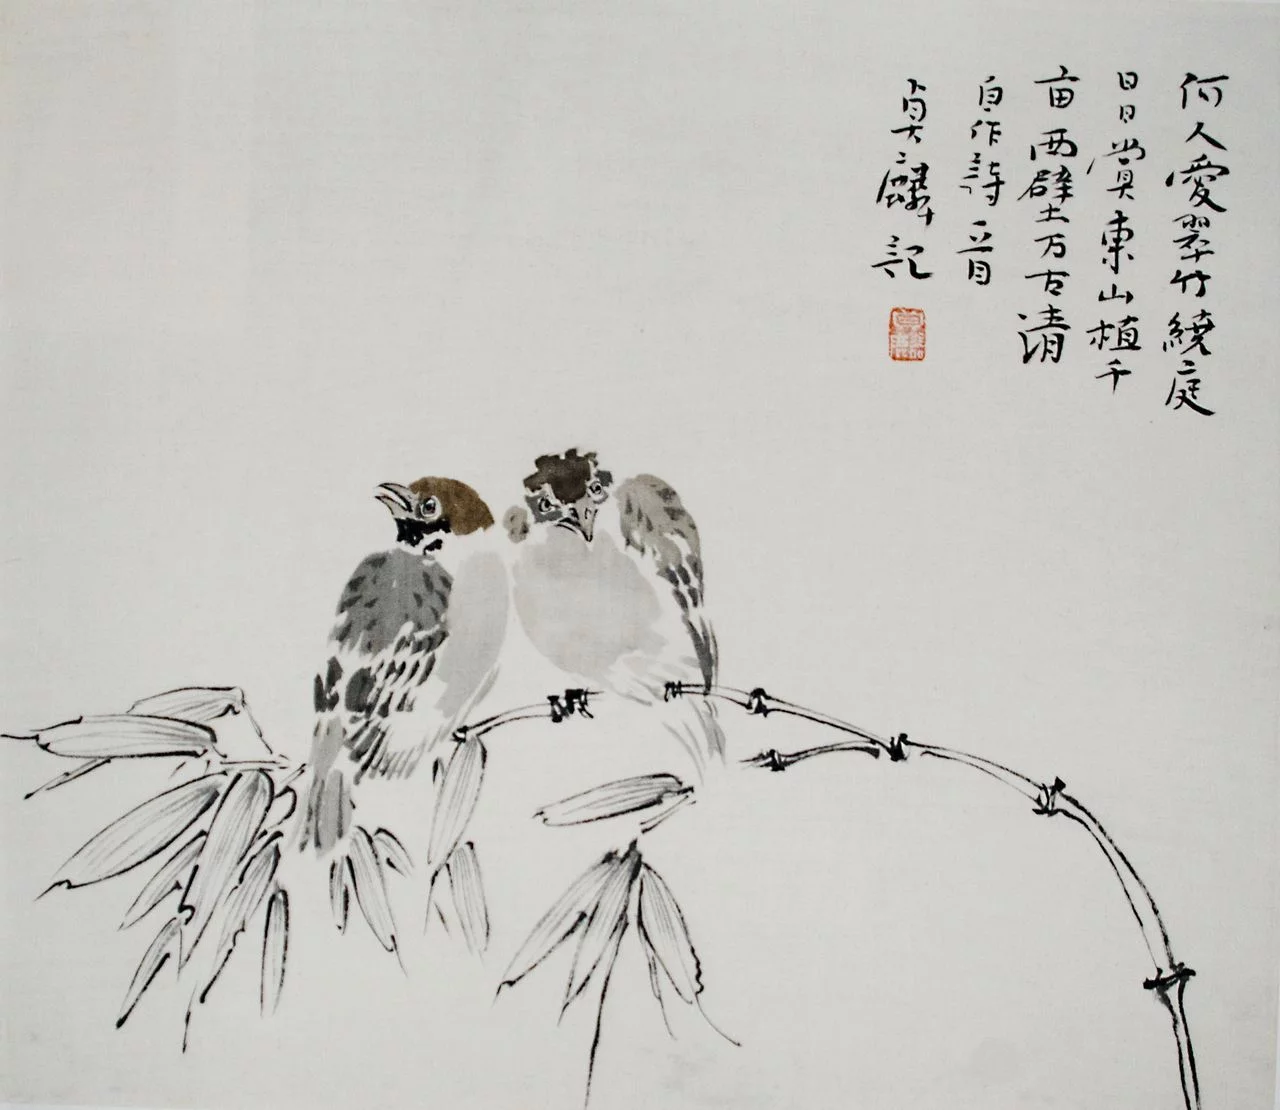 何人愛翠竹繞庭
日日賞東山植千
亩西壁万古清
自作詩一首
貞麟記